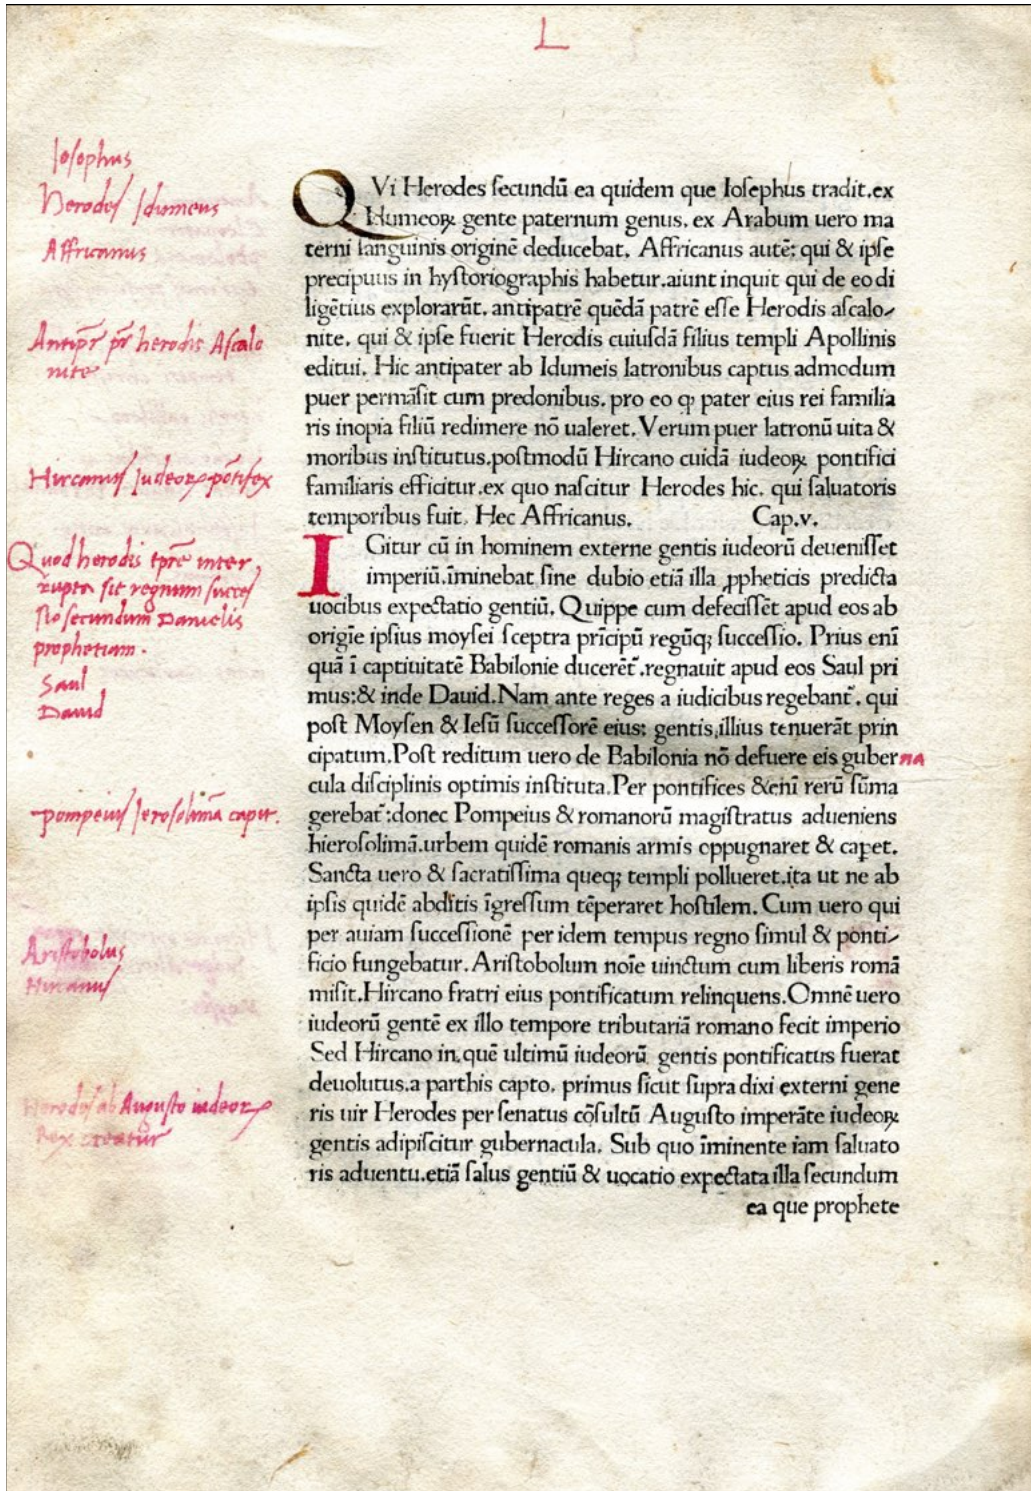 L
Iosophus
Herodes Idumeus
Affricanus
Antipr̄ pr̄ herodis Ascalo
nite
Hircanus Iudeoꝝ pōtifex
Quod herodis tp̄re inter
rupta sit regnum succes
sio secundum Danielis
prophetiam.
Saul
David
pompeius Ierosolimā capit.
Aristobolus
Hircanus
Herodes ab Augusto iudeoꝝ
Rex creatur
QVi Herodes ſecundū ea quidem que Ioſephus tradit.ex
Idumeoꝝ gente paternum genus. ex Arabum uero ma
terni ſanguinis originē deducebat. Affricanus autē: qui & ipſe
precipuus in hyſtoriographis habetur.aiunt inquit qui de eo di
ligētius explorarūt. antipatrē quēdā patrē eſſe Herodis aſcalo⸗
nite. qui & ipſe fuerit Herodis cuiuſdā filius templi Apollinis
editui. Hic antipater ab Idumeis latronibus captus admodum
puer permāſit cum predonibus. pro eo ꝙ pater eius rei familia
ris inopia filiū redimere nō ualeret. Verum puer latronū uita &
moribus inſtitutus.poſtmodū Hircano cuidā iudeoꝝ pontifici
familiaris efficitur.ex quo naſcitur Herodes hic. qui ſaluatoris
temporibus fuit. Hec Affricanus. Cap.v.
IGitur cū in hominem externe gentis iudeorū deueniſſet
imperiū.īminebat ſine dubio etiā illa ꝓpheticis predicta
uocibus expectatio gentiū. Quippe cum defeciſſēt apud eos ab
origīe ipſius moyſei ſceptra prīcipū regūqꝫ ſucceſſio. Prius enī
quā ī captiuitatē Babilonie ducerēt᷑.regnauit apud eos Saul pri
mus:& inde Dauid.Nam ante reges a iudicibus regebant᷑. qui
poſt Moyſen & Ieſū ſucceſſorē eius: gentis illius tenuerāt prin
cipatum.Poſt reditum uero de Babilonia nō defuere eis guberna
cula diſciplinis optimis inſtituta.Per pontifices &enī rerū ſūma
gerebat᷑:donec Pompeius & romanorū magiſtratus adueniens
hieroſolimā.urbem quidē romanis armis oppugnaret & capet.
Sancta uero & ſacratiſſima queqꝫ templi pollueret.ita ut ne ab
ipſis quidē abditis īgreſſum tēperaret hoſtilem. Cum uero qui
per auiam ſucceſſionē per idem tempus regno ſimul & ponti⸗
ficio fungebatur. Ariſtobolum noīe uinctum cum liberis romā
miſit.Hircano fratri eius pontificatum relinquens.Omnē uero
iudeorū gentē ex illo tempore tributariā romano fecit imperio
Sed Hircano in.quē ultimū iudeorū gentis pontificatus fuerat
deuolutus.a parthis capto. primus ſicut ſupra dixi externi gene
ris uir Herodes per ſenatus cōſultū Auguſto imperāte iudeoꝝ
gentis adipiſcitur gubernacula. Sub quo īminente iam ſaluato
ris aduentu.etiā ſalus gentiū & uocatio expectata illa ſecundum
ea que prophete